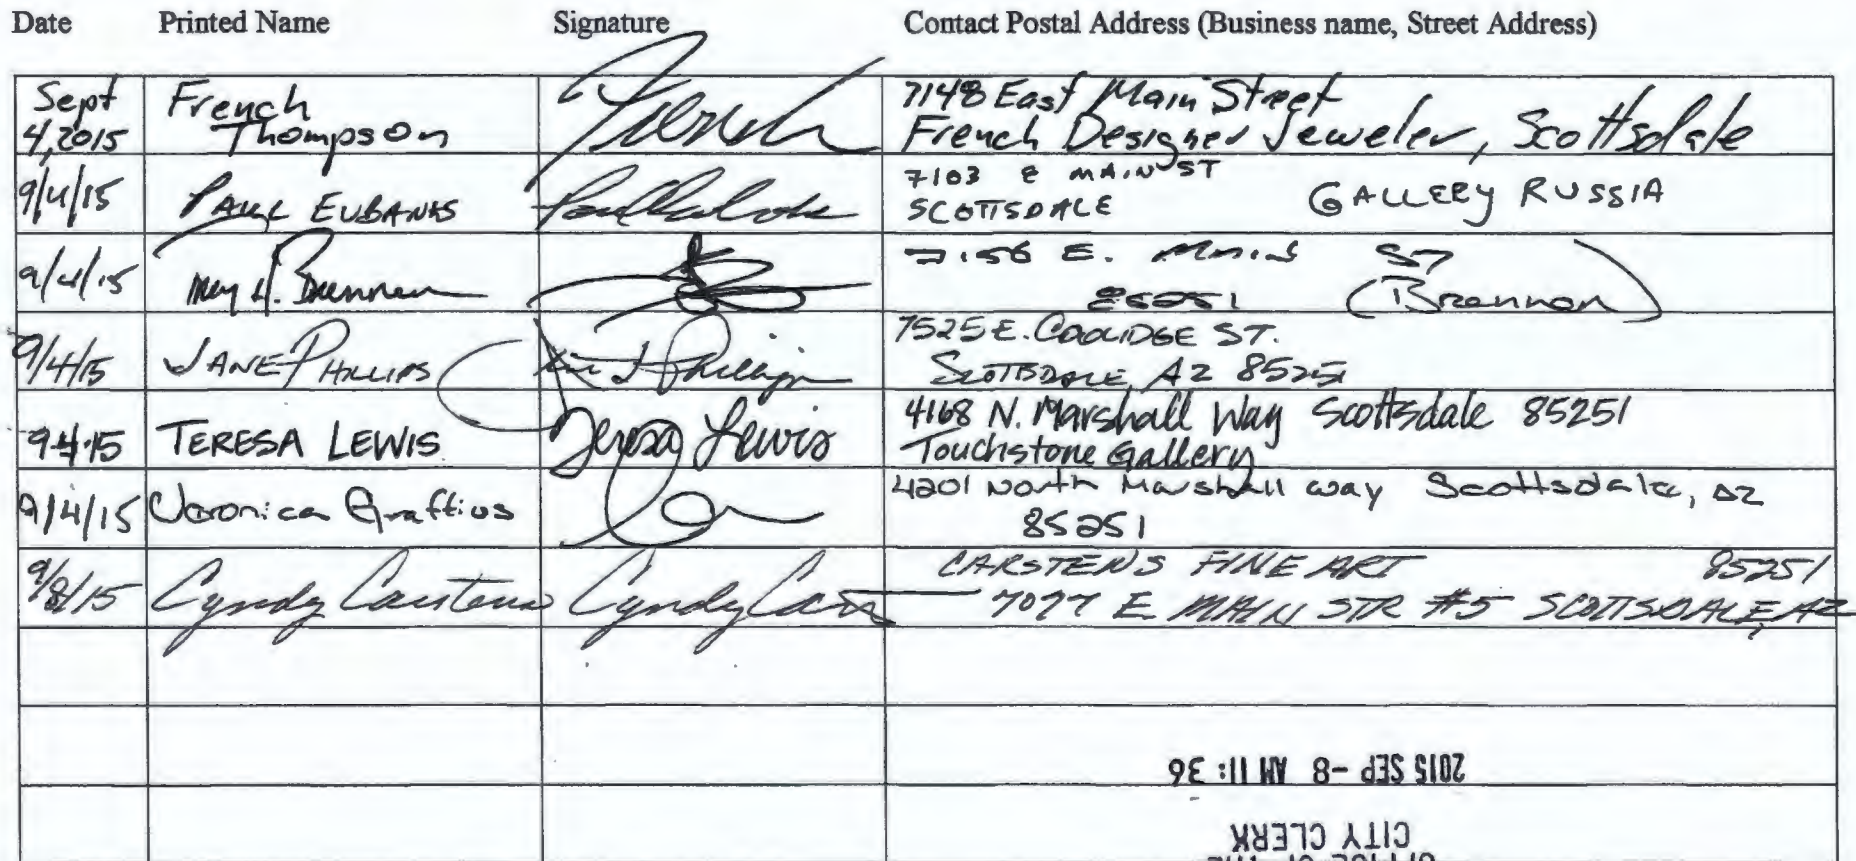 Date Printed Name Signature Contact Postal Address (Business name, Street Address)
Sept 4, 2015 French Thompson French 7148 East Main Street
French Designer Jeweler, Scottsdale
9/4/15 PAUL EUBANKS 7103 E MAIN ST
SCOTTSDALE GALLERY RUSSIA
9/4/15 7156 E. Main ST
85251 (Brennan)
9/4/15 JANE PHILLIPS Phillips 7525 E. COOLIDGE ST.
SCOTTSDALE, AZ 85251
9-4-15 TERESA LEWIS Teresa Lewis 4168 N. Marshall Way Scottsdale 85251
Touchstone Gallery
9/4/15 Veronica Graffius 4201 North Marshall way Scottsdale, AZ
85251
9/8/15 Cyndy Carstens Cyndy CARSTENS FINE ART 85251
7077 E. MAIN STR #5 SCOTTSDALE, AZ
2015 SEP -8 AM 11: 36
CITY CLERK
OFFICE OF THE